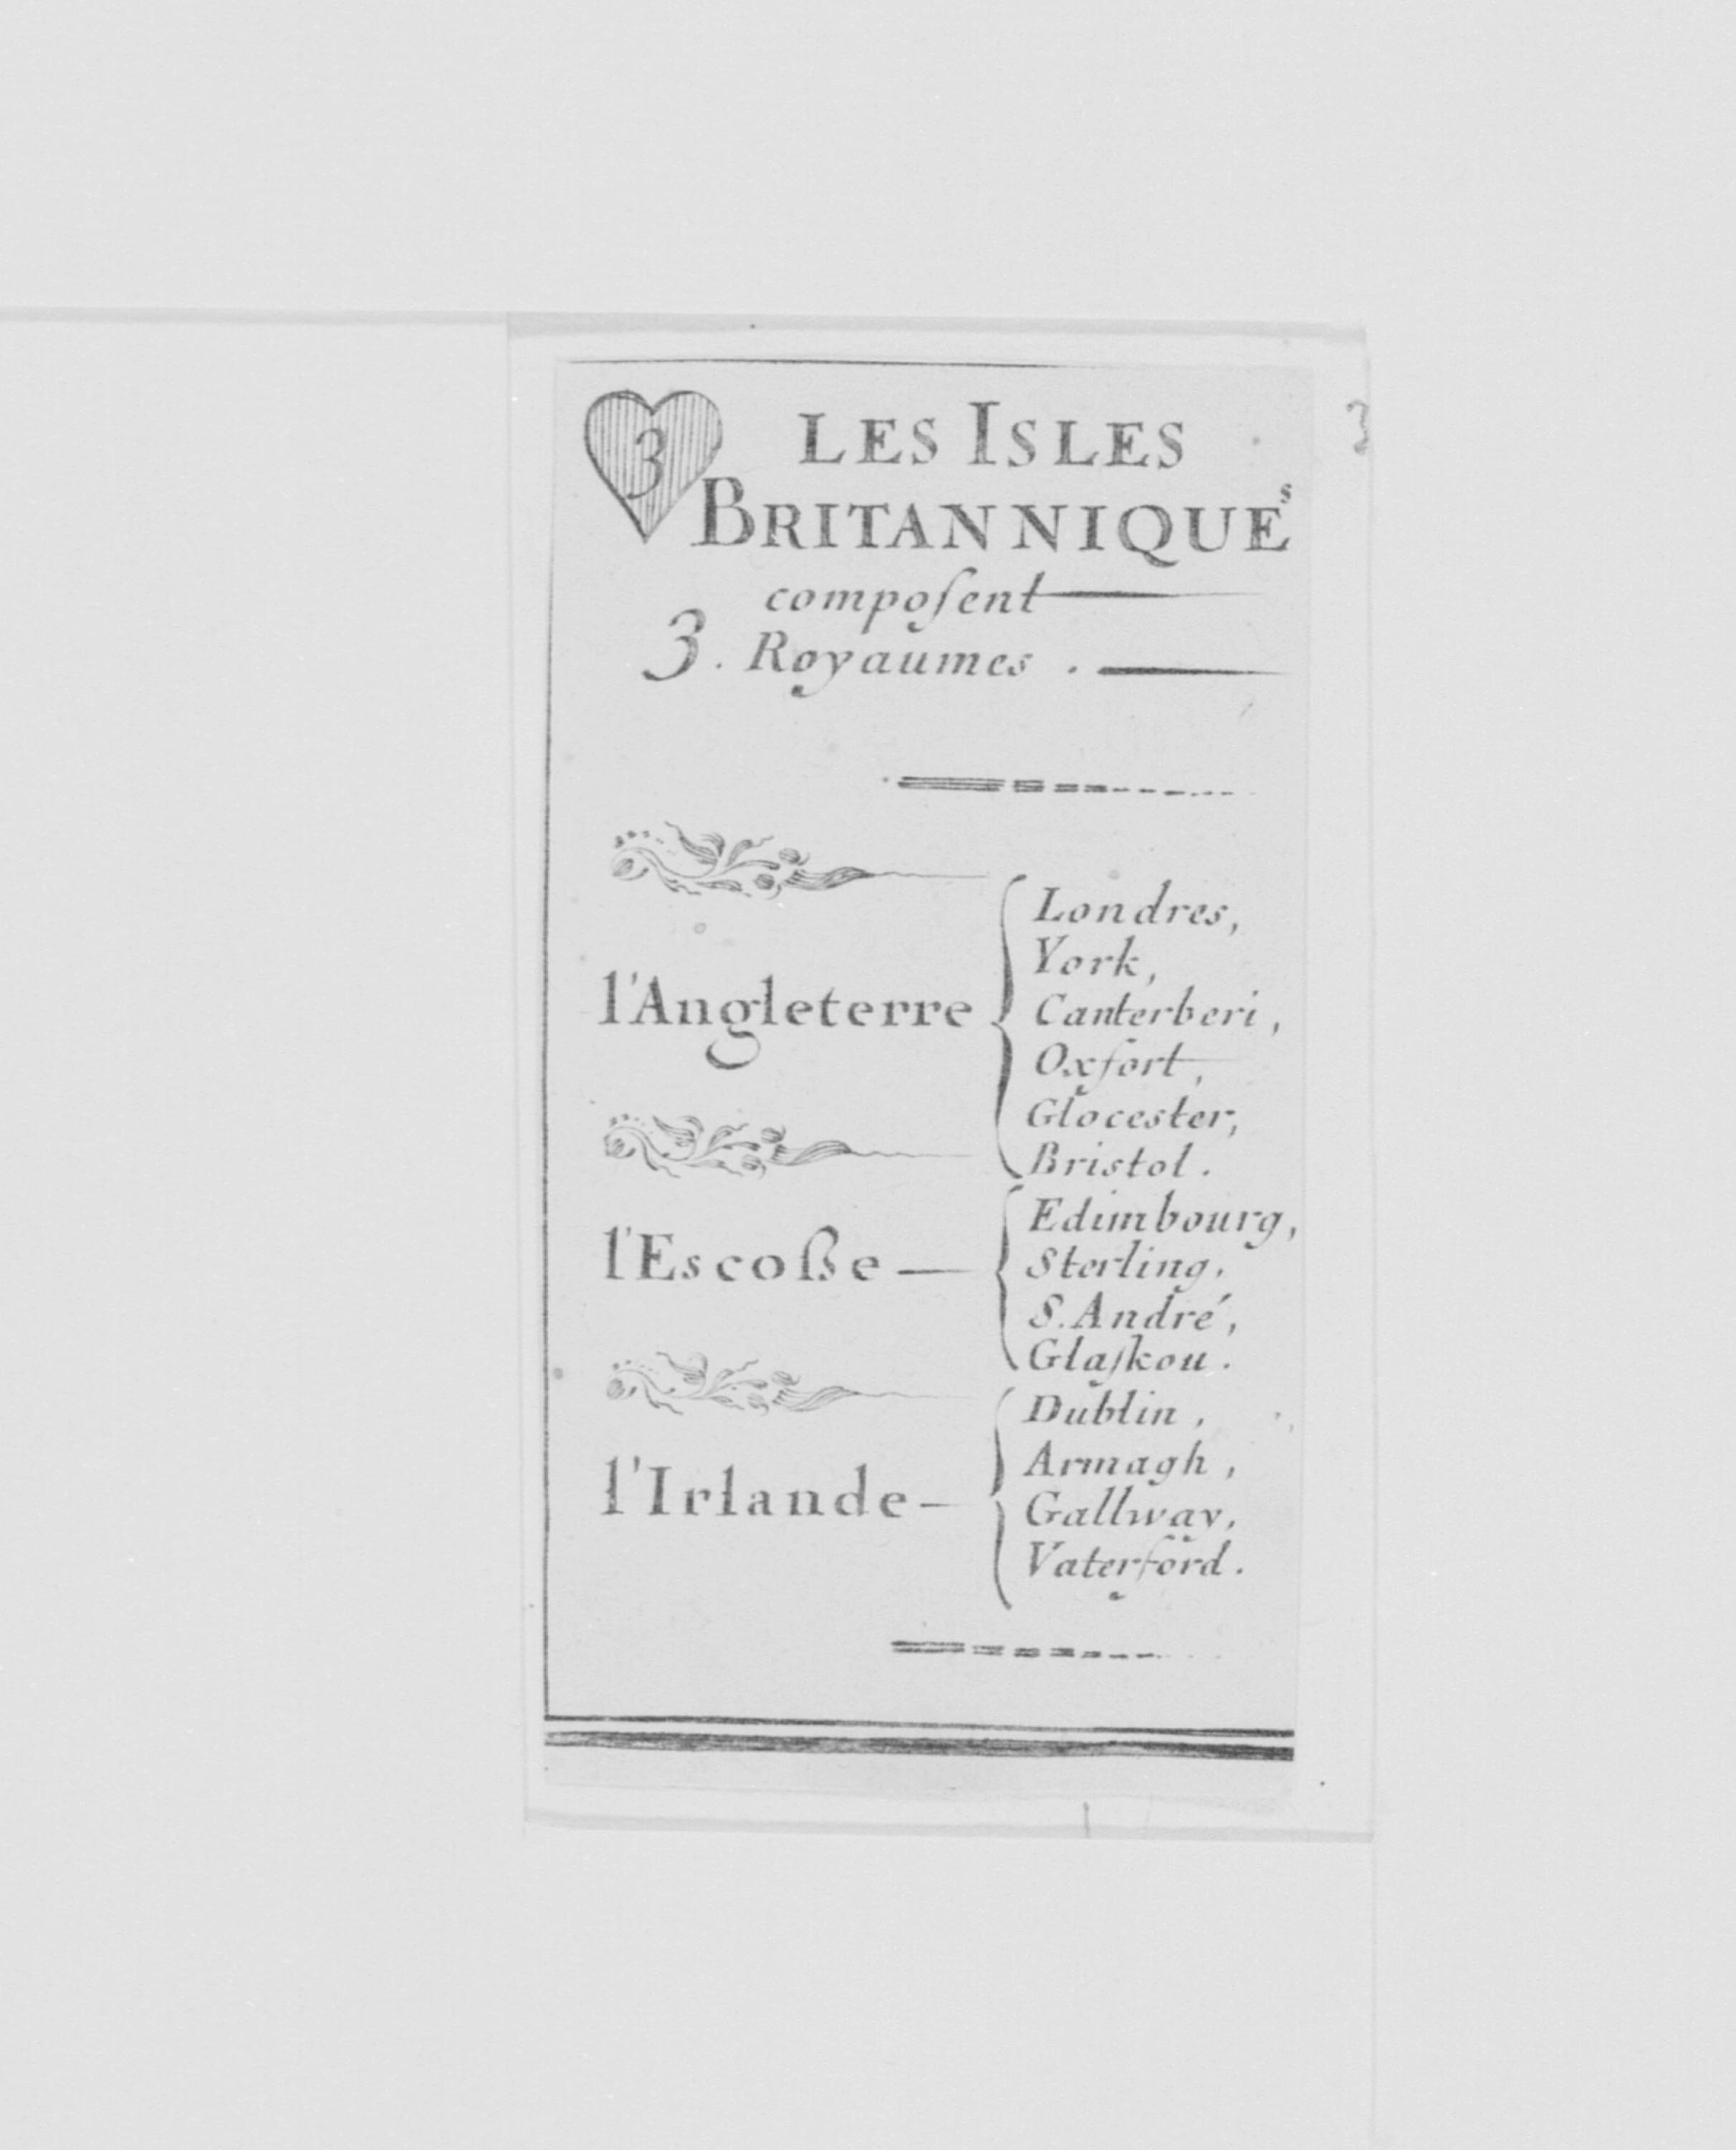 3 LES ISLES
BRITANNIQUEs
compoſent
3. Royaumes.
l'Angleterre
Londres,
York,
Canterberi,
Oxfort,
Glocester,
Bristol.
l'Escoße
Edimbourg,
Sterling,
S. André,
Glaſkou.
l'Irlande
Dublin,
Armagh,
Gallway,
Vaterford.
3